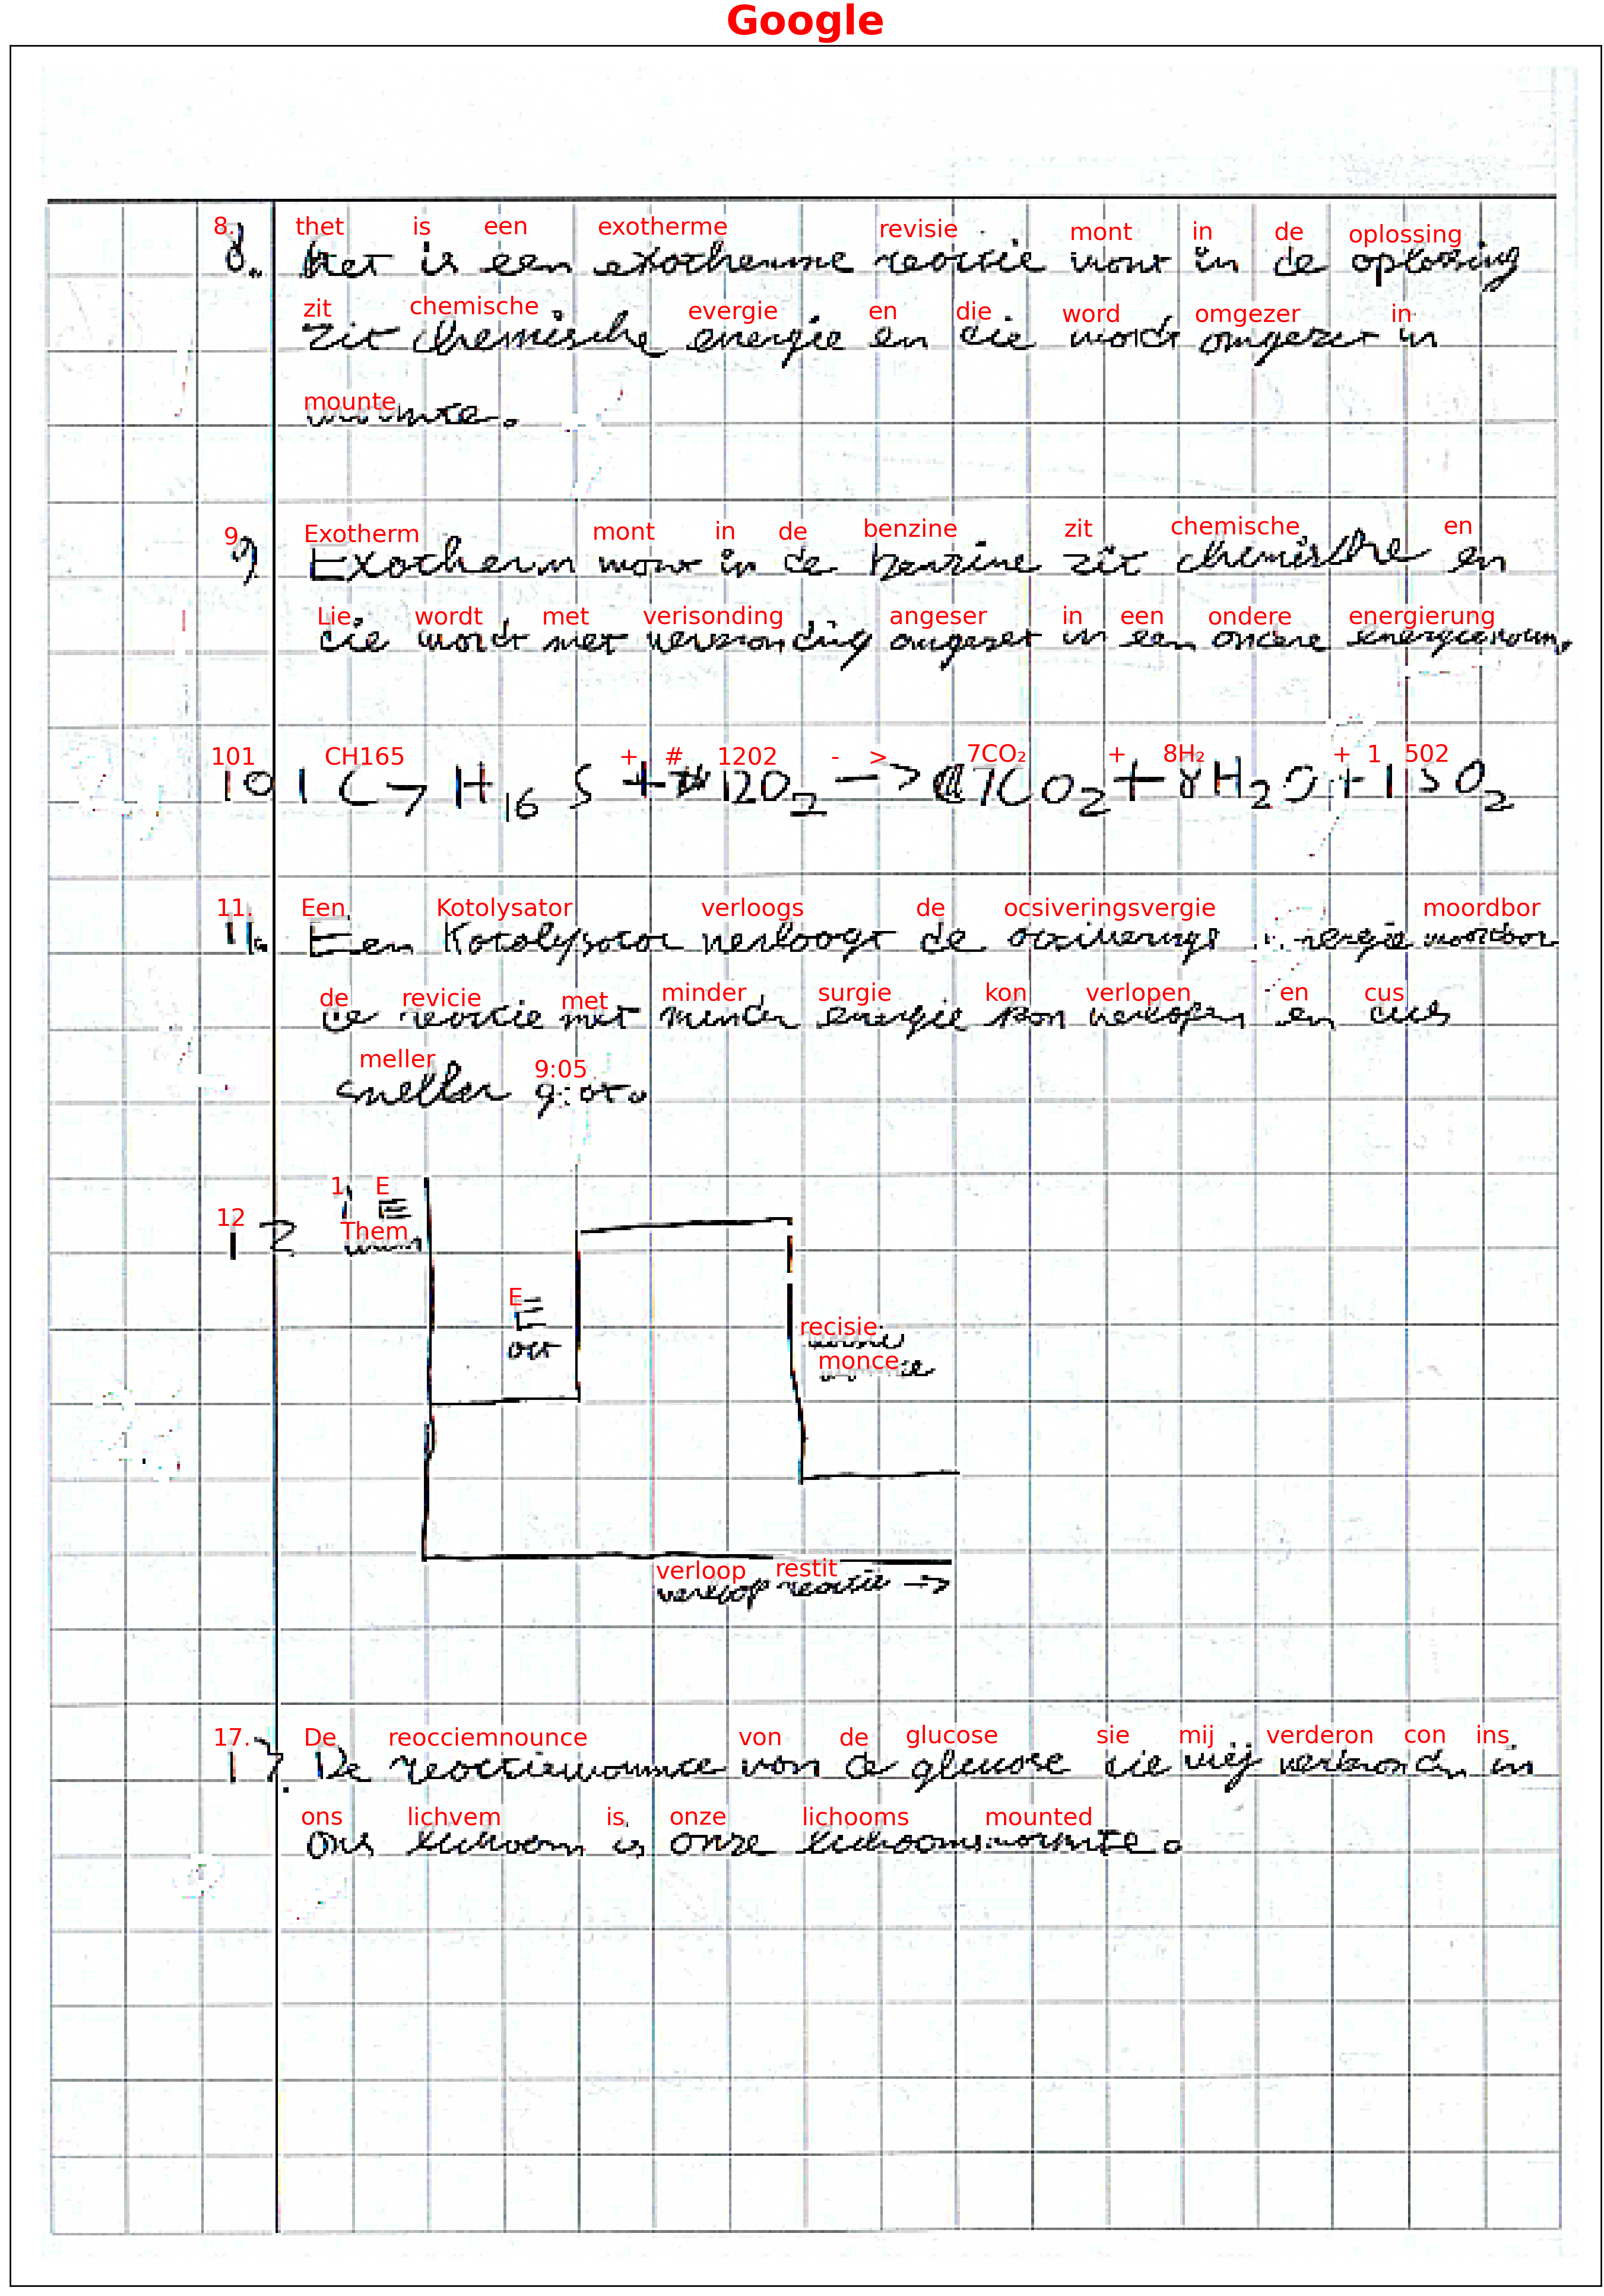 Google
8. thet is een exotherme revisie mont in de oplossing
8. Het is een exotherme reactie want in de oplossing
zit chemische evergie en die word omgezer in
zit chemische energie en die wordt omgezet in
mounte
warmte.
9 Exotherm mont in de benzine zit chemische en
9. Exotherm want in de benzine zit chemische en
Lie wordt met verisonding angeser in een ondere energierung
die wordt met verbranding omgezet in een andere energievorm.
101 CH165 + # 1202 - > 7CO₂ + 8H₂ + 1 502
10 1 C7 H16 S + 12O2 -> 7CO2 + 8H2O + 1SO2
11. Een Kotolysator verloogs de ocsiveringsvergie moordbor
11. Een Katalysator verlaagt de activerings energie waardoor
de revicie met minder surgie kon verlopen en cus
de reactie met minder energie kan verlopen en dus
meller 9:05
sneller gaat.
1 E
↑ E
12
12
Them
E
E
act
recisie
reactie
monce
verloop restit
verloop reactie ->
17. De reocciemnounce von de glucose sie mij verderon con ins
De reactiewarmte van de glucose die wij verbranden in
ons lichvem is onze lichooms mounted
ons lichaam is onze lichaamswarmte.